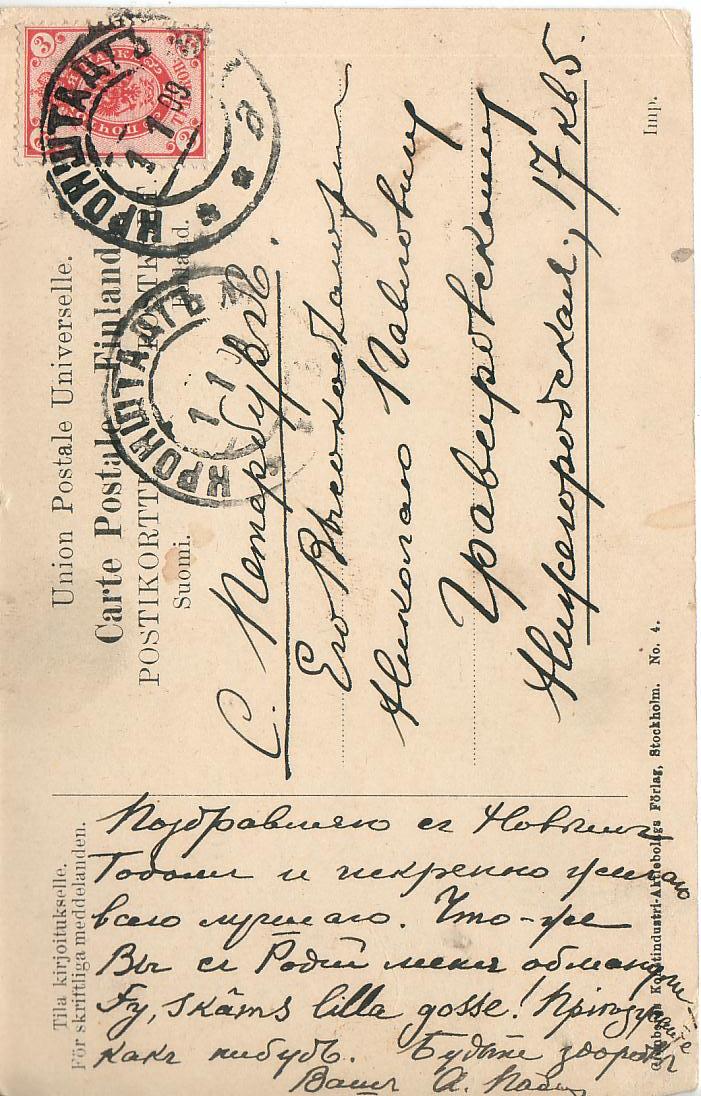 Union Postale Universelle.
Carte Postale Finland
POSTIKORTTI
Suomi.
КРОНШТАДТЪ
1 1 09
а
КРОНШТАДТЪ
1 1
3
С. Петербургъ.
Его Высокоблагородiю
Николаю Павловичу
Гравировскому
Нижегородская, 17 кв 5.
Imp.
Tila kirjoitukselle.
För skriftliga meddelanden.
Поздравляю съ Новымъ
Годомъ и искренно желаю
всего лучшаго. Что-же
Вы съ Родей меня обманули
Fy, skäms lilla gosse! Прiѣзжайте
какъ нибудь. Будьте здоровы
Вашъ А.
Konstindustri-Aktiebolags Förlag, Stockholm. No. 4.